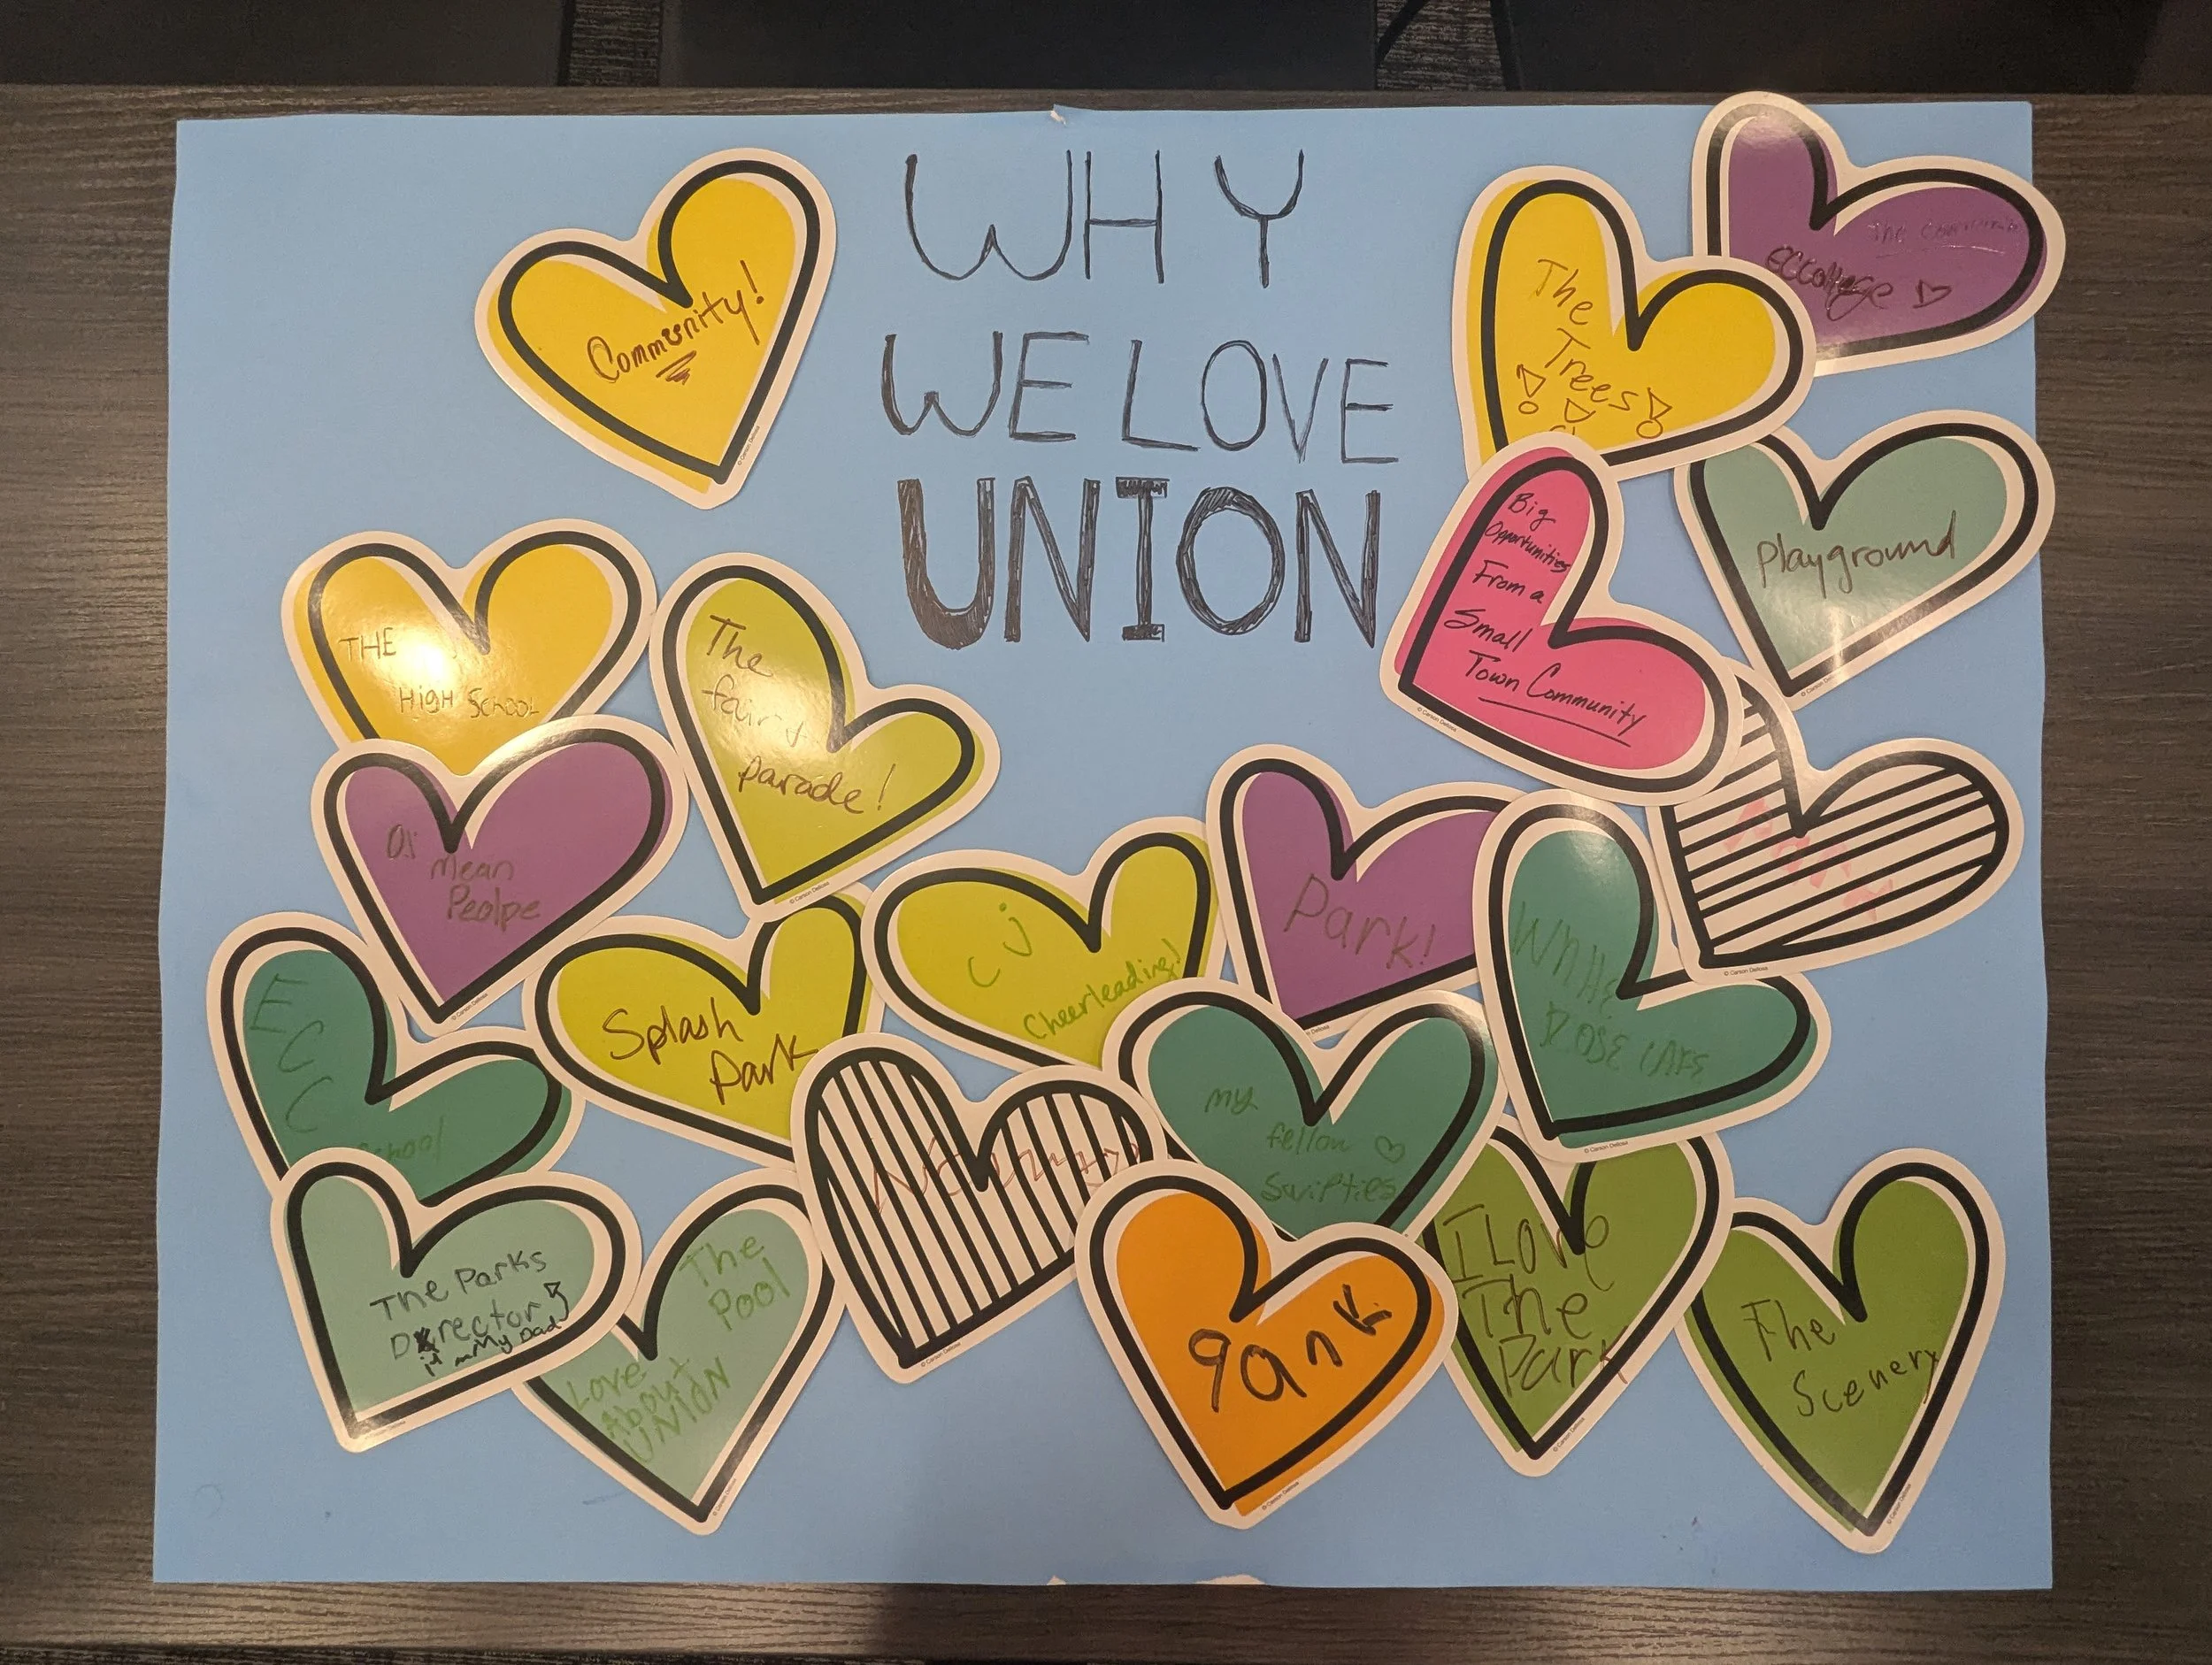 WHY
WE LOVE
UNION
Community!
The
Trees
Big
Opportunities
From a
Small
Town Community
Playground
THE
HIGH SCHOOL
The
fair +
parade!
Mean
Peolpe
E
C
C
School
Splash
Park
C J
Cheerleading!
Park!
ROSE
my
fellow
Swifties
The Parks
Director
My Dad
The
Pool
Love
About
UNION
I Love
The
Park
The
Scenery
© Carson Dellosa